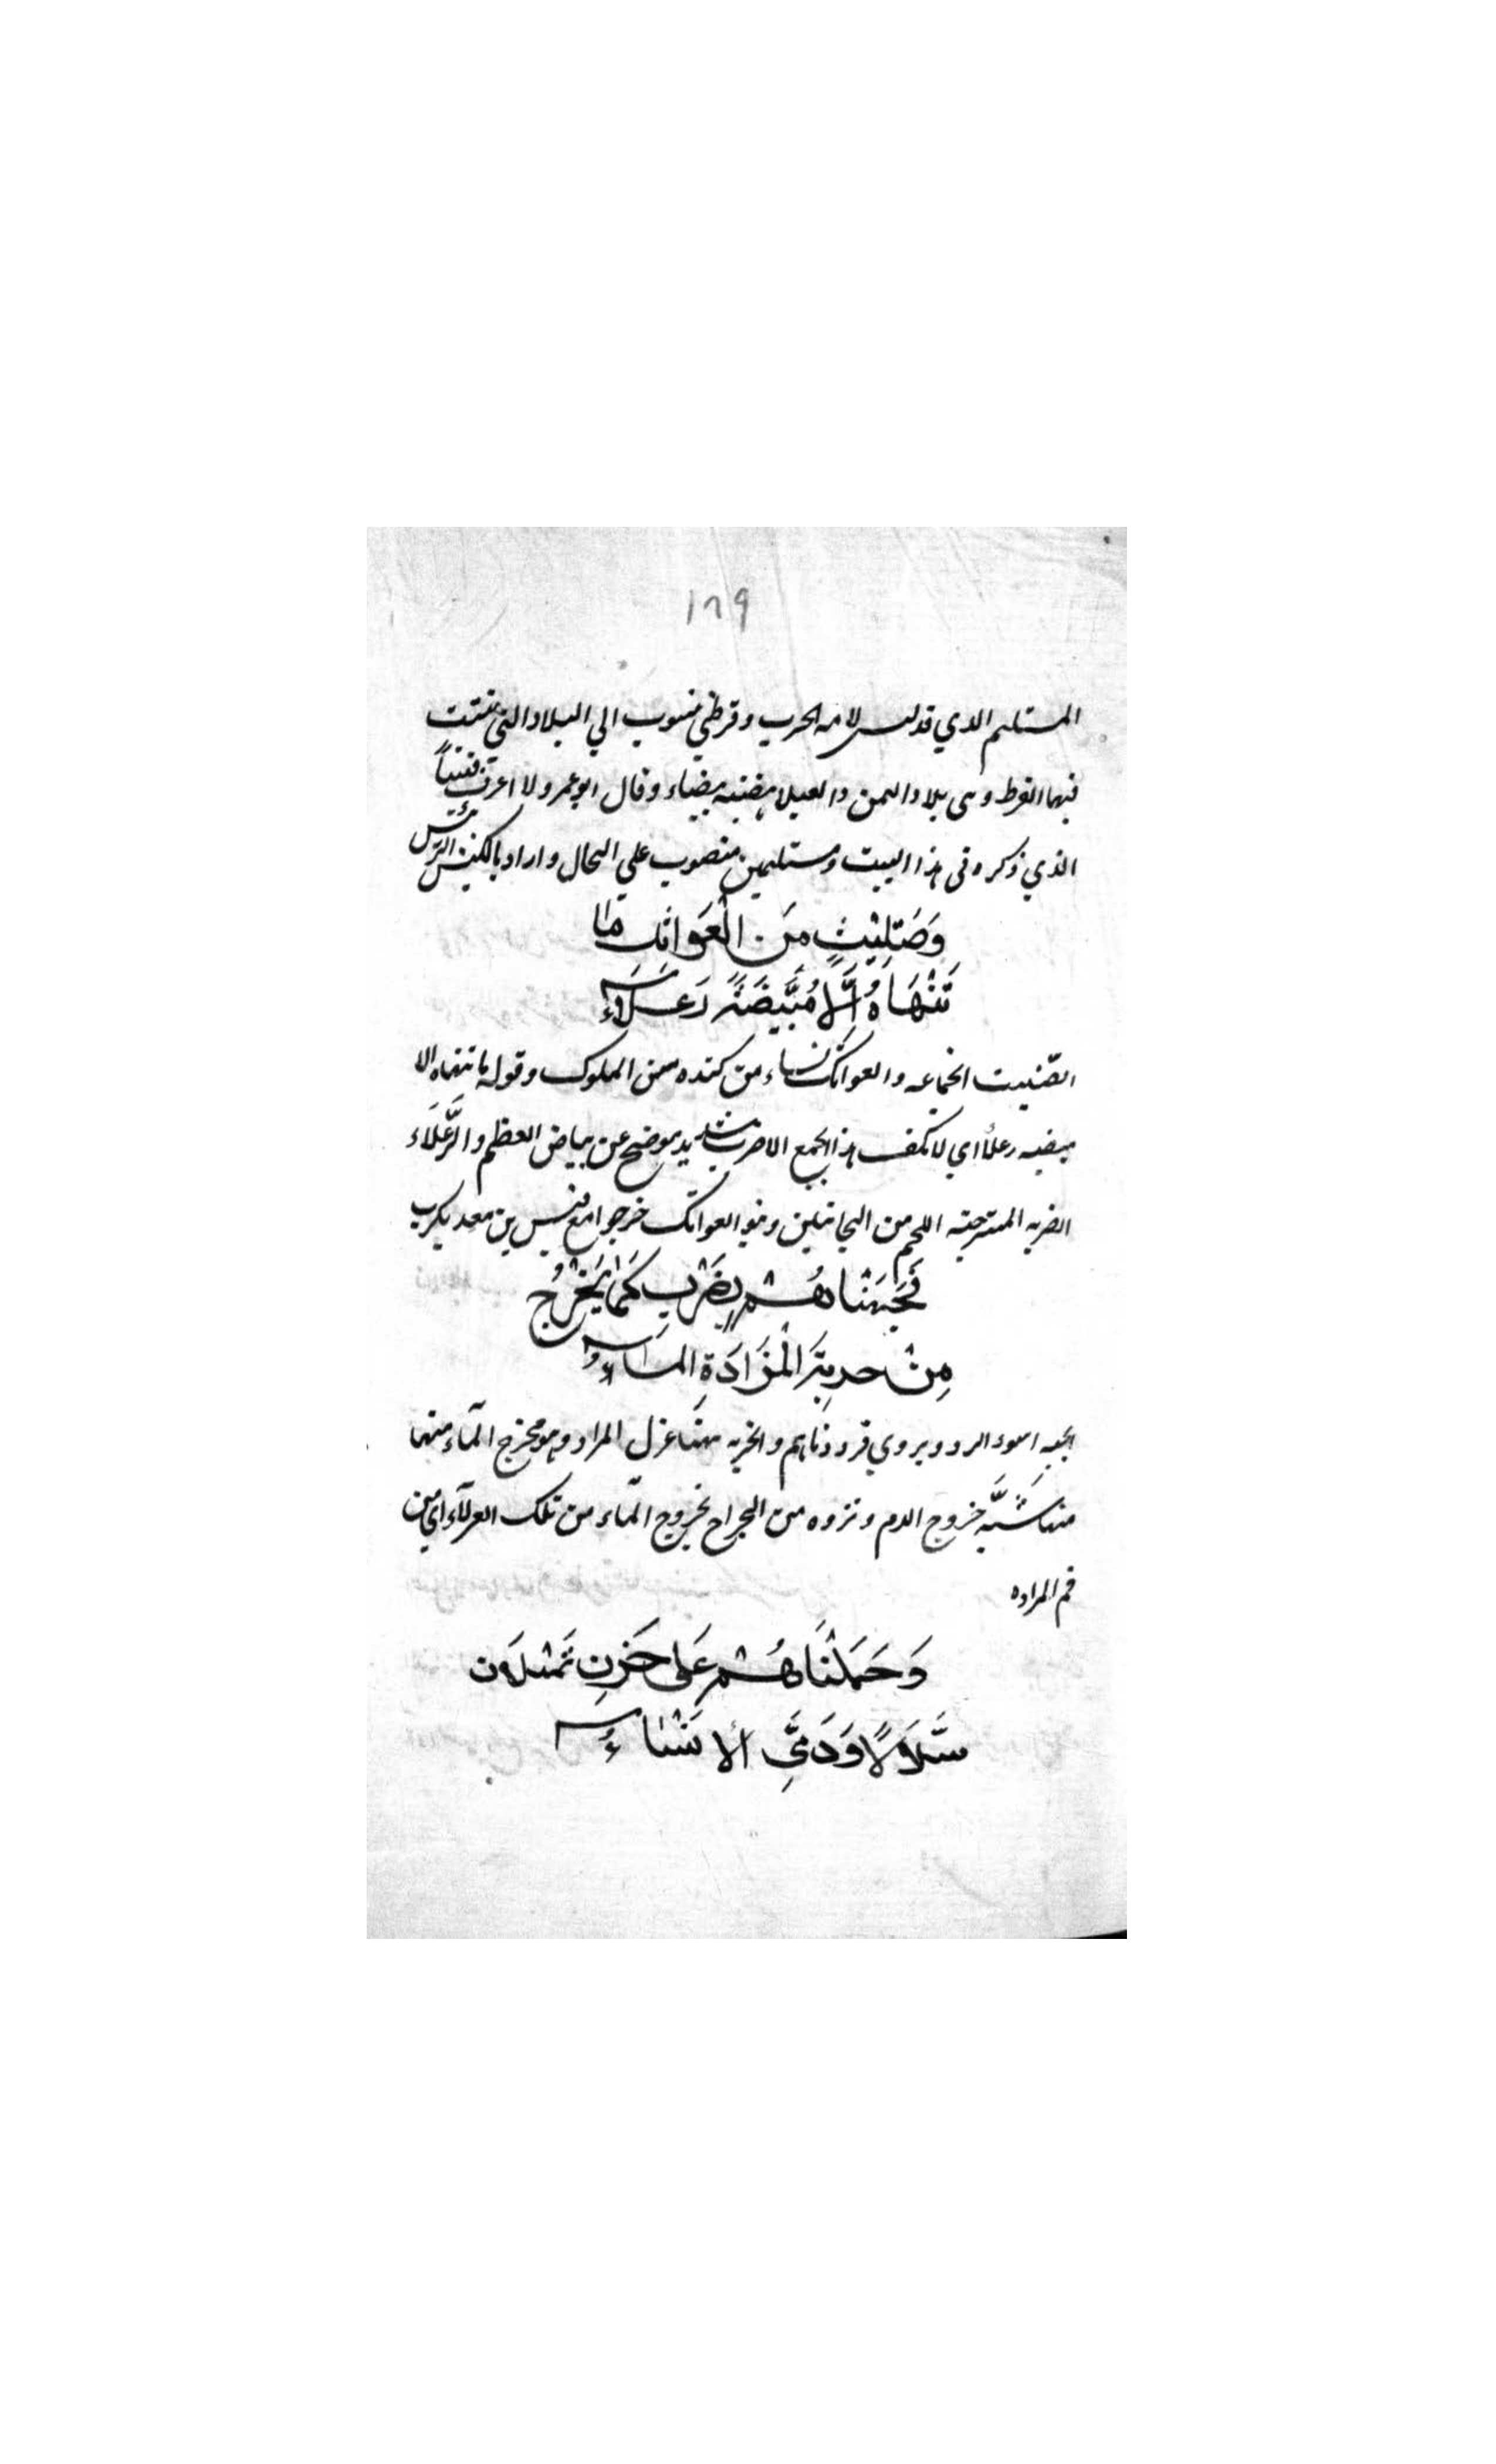 ١٦٩
المستلئم الدي قد لبس لامه الحرب وقرظي منسوب الي البلاد التي ينبت
فيها القرظ وهى بلاد اليمن والعبلا هضبه بيضاء وقال ابو عمرو لا اعرف قيساً
الذي ذكره فى هذا البيت ومستلئمين منصوب علي الحال واراد بالكبش الرئيس
وَصَتِيْتٍ مِنَ الْعَوَاتِكِ مَا
تَنْهَاهُ اِلَّا مُبْيَضَّةٌ رَعْلَاءُ
الصّتيت الجماعه والعواتك نساء من كنده من الملوك وقوله ما تنهاه الا
مبيضه رعلاء اي لا يكف هذا الجمع الا ضرب شديد موضح عن بياض العظم والرَّعْلَاء
الضربه المسترخيه اللحم من الجانبين وبنو العواتك خرجوا مع قيس بن معد يكرب
فَجَبَهْنَاهُمْ بِضَرْبٍ كَمَا يَخْرُجُ
مِنْ خربة الْمَزَادَةِ الْمَاءُ
الجبه اسوء الرد ويروي فرددناهم والخربه ههنا عزل المزاد وهو مخرج المآء منها
منها شَبَّه خروج الدم ونزوه من الجراح بخروج المآء من تلك العزلآء اي من
فم المزاده
وَحَمَلْنَاهُمْ عَلى حَزْنِ ثَهْلَان
شَلَّالًا وَدُمِّيَ الْاَنْسَاءُ